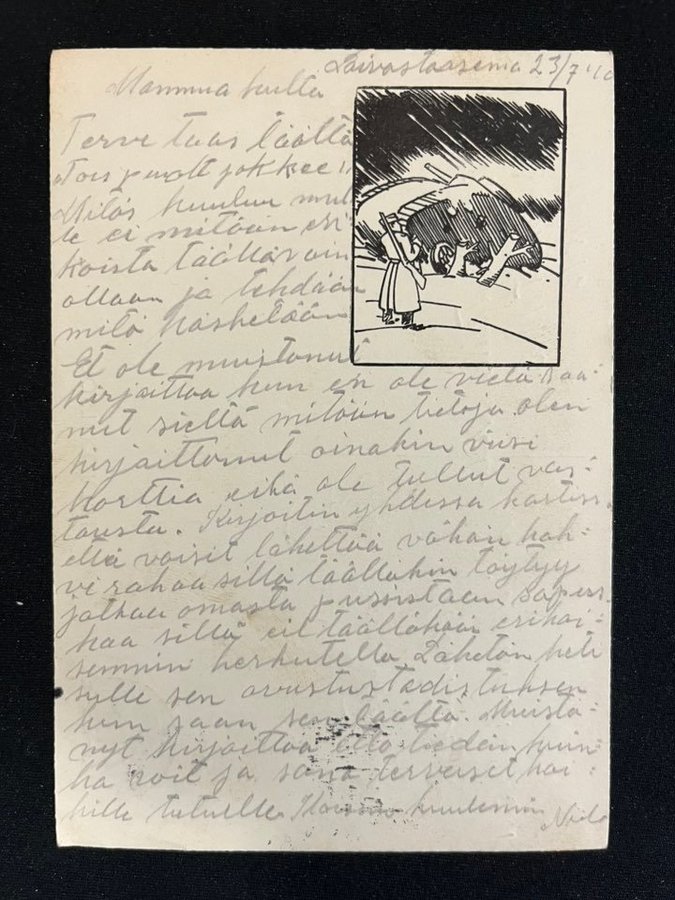 Laivastoasema 23/7
Mammua kulta
Terve taas täältä
Mitäs kuuluu mul
le ei mitään eri
koista täällä vain
ollaan ja tehdään
mitä käsketään
Et ole muistanut
kirjoittaa kun en ole vielä saa
nut sieltä mitään tietoja olen
kirjoittanut ainakin viisi
korttia eikä ole tullut vas:
tausta. Kirjoitin yhdessä kortiss
että voisit lähettää vähän kah:
vi rahaa sillä täälläkin täytyy
jatkaa omasta
kaa sillä ei täälläkään erikoi:
semmin herkutella. Lähetän heti
sulle sen avustustodistuksen
kun saan sen täältä. Muista
nyt kirjoittaa että tiedän kuin
ka voit ja sano terveiset kai:
kille tutuille